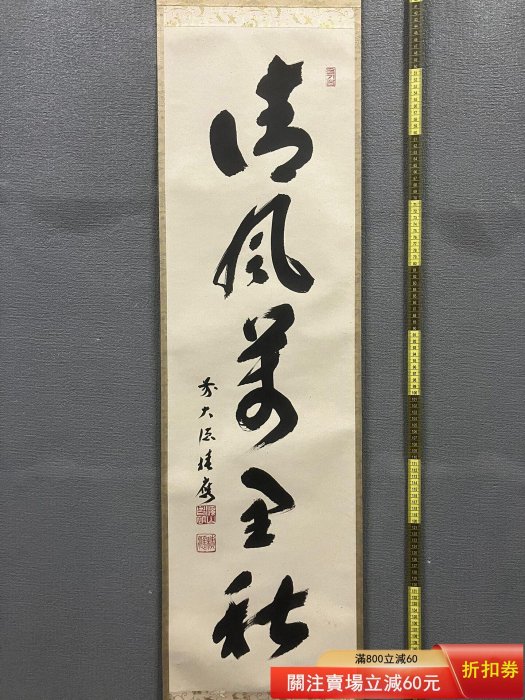 清風萬里秋
前大德桂應
滿800立減60
關注賣場立減60元
折扣券